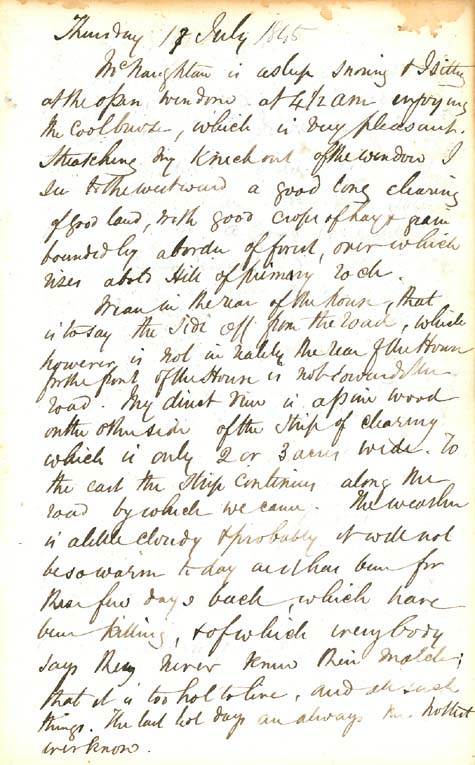 Thursday 17 July 1845
McNaughtan is asleep snoring & I sitting
at the open window at 4 1/2 am enjoying
the cool breeze, which is very pleasant.
Stretching my neck out of the window I
see to the westward a good long clearing
of good land, with good crops of hay & grain
bounded by a border of forest, over which
rises a bold Hill of primary rock.
We are in the rear of the house, that
is to say the side off from the road, which
however is not in reality the rear of the House
for the front of the House is not towards the
road. My direct view is a pine wood
on the other side of the strip of clearing
which is only 2 or 3 acres wide. To
the east the strip continues along the
road by which we came. The weather
is a little cloudy & probably it will not
be so warm to day as it has been for
these few days back, which have
been killing, & of which every body
says they never knew their match;
that it is too hot to live, and all such
things. The last hot days are always the hottest
ever known.